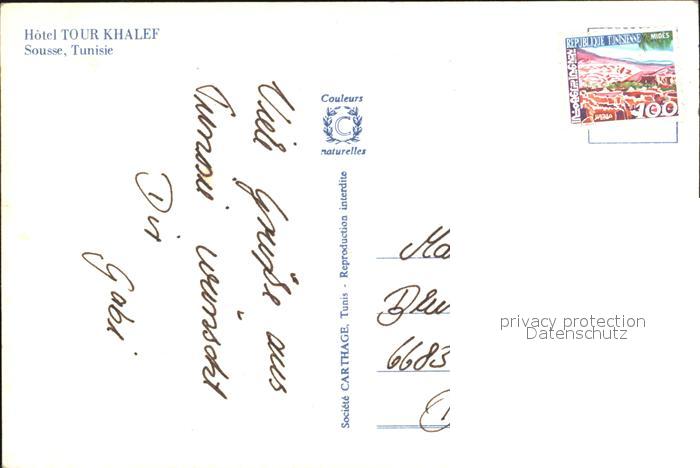 Hôtel TOUR KHALEF
Sousse, Tunisie
REPUBLIQUE TUNISIENNE
MIDÈS
100
Couleurs
C
naturelles
Viele Grüße aus
Tunesi wünscht
Dir
Gabi
Société CARTHAGE, Tunis - Reproduction interdite
Ma
Blu
6683
privacy protection
Datenschutz